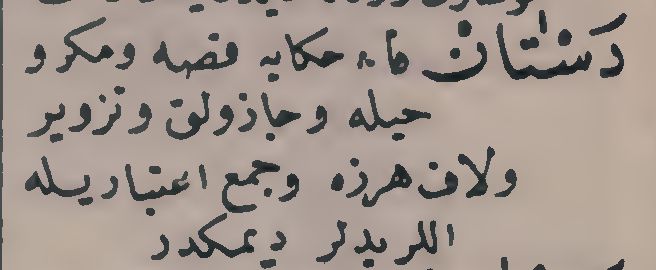 دستان فا٠ حكايه قصه ومكر و
حيله وجاذولق وتزوير
ولاف هرزه وجمع اعتباريله
اللريدلر ديمكدر